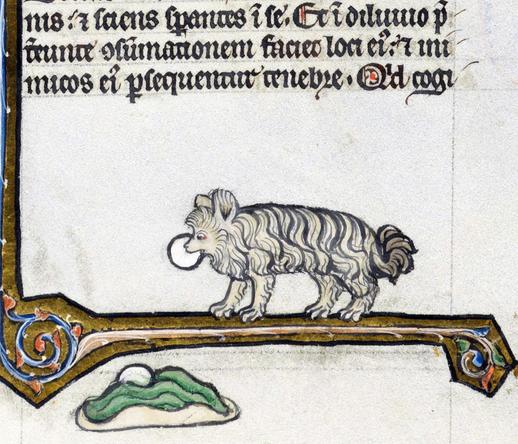 nis : ⁊ sciens sꝑantes ī se. Et ī diluuio p̄
t̄eunte ꝯsūmationem faciet loci eiꝰ: ⁊ ini
micos eiꝰ ꝑsequentur tenebre. Qͥd cogi